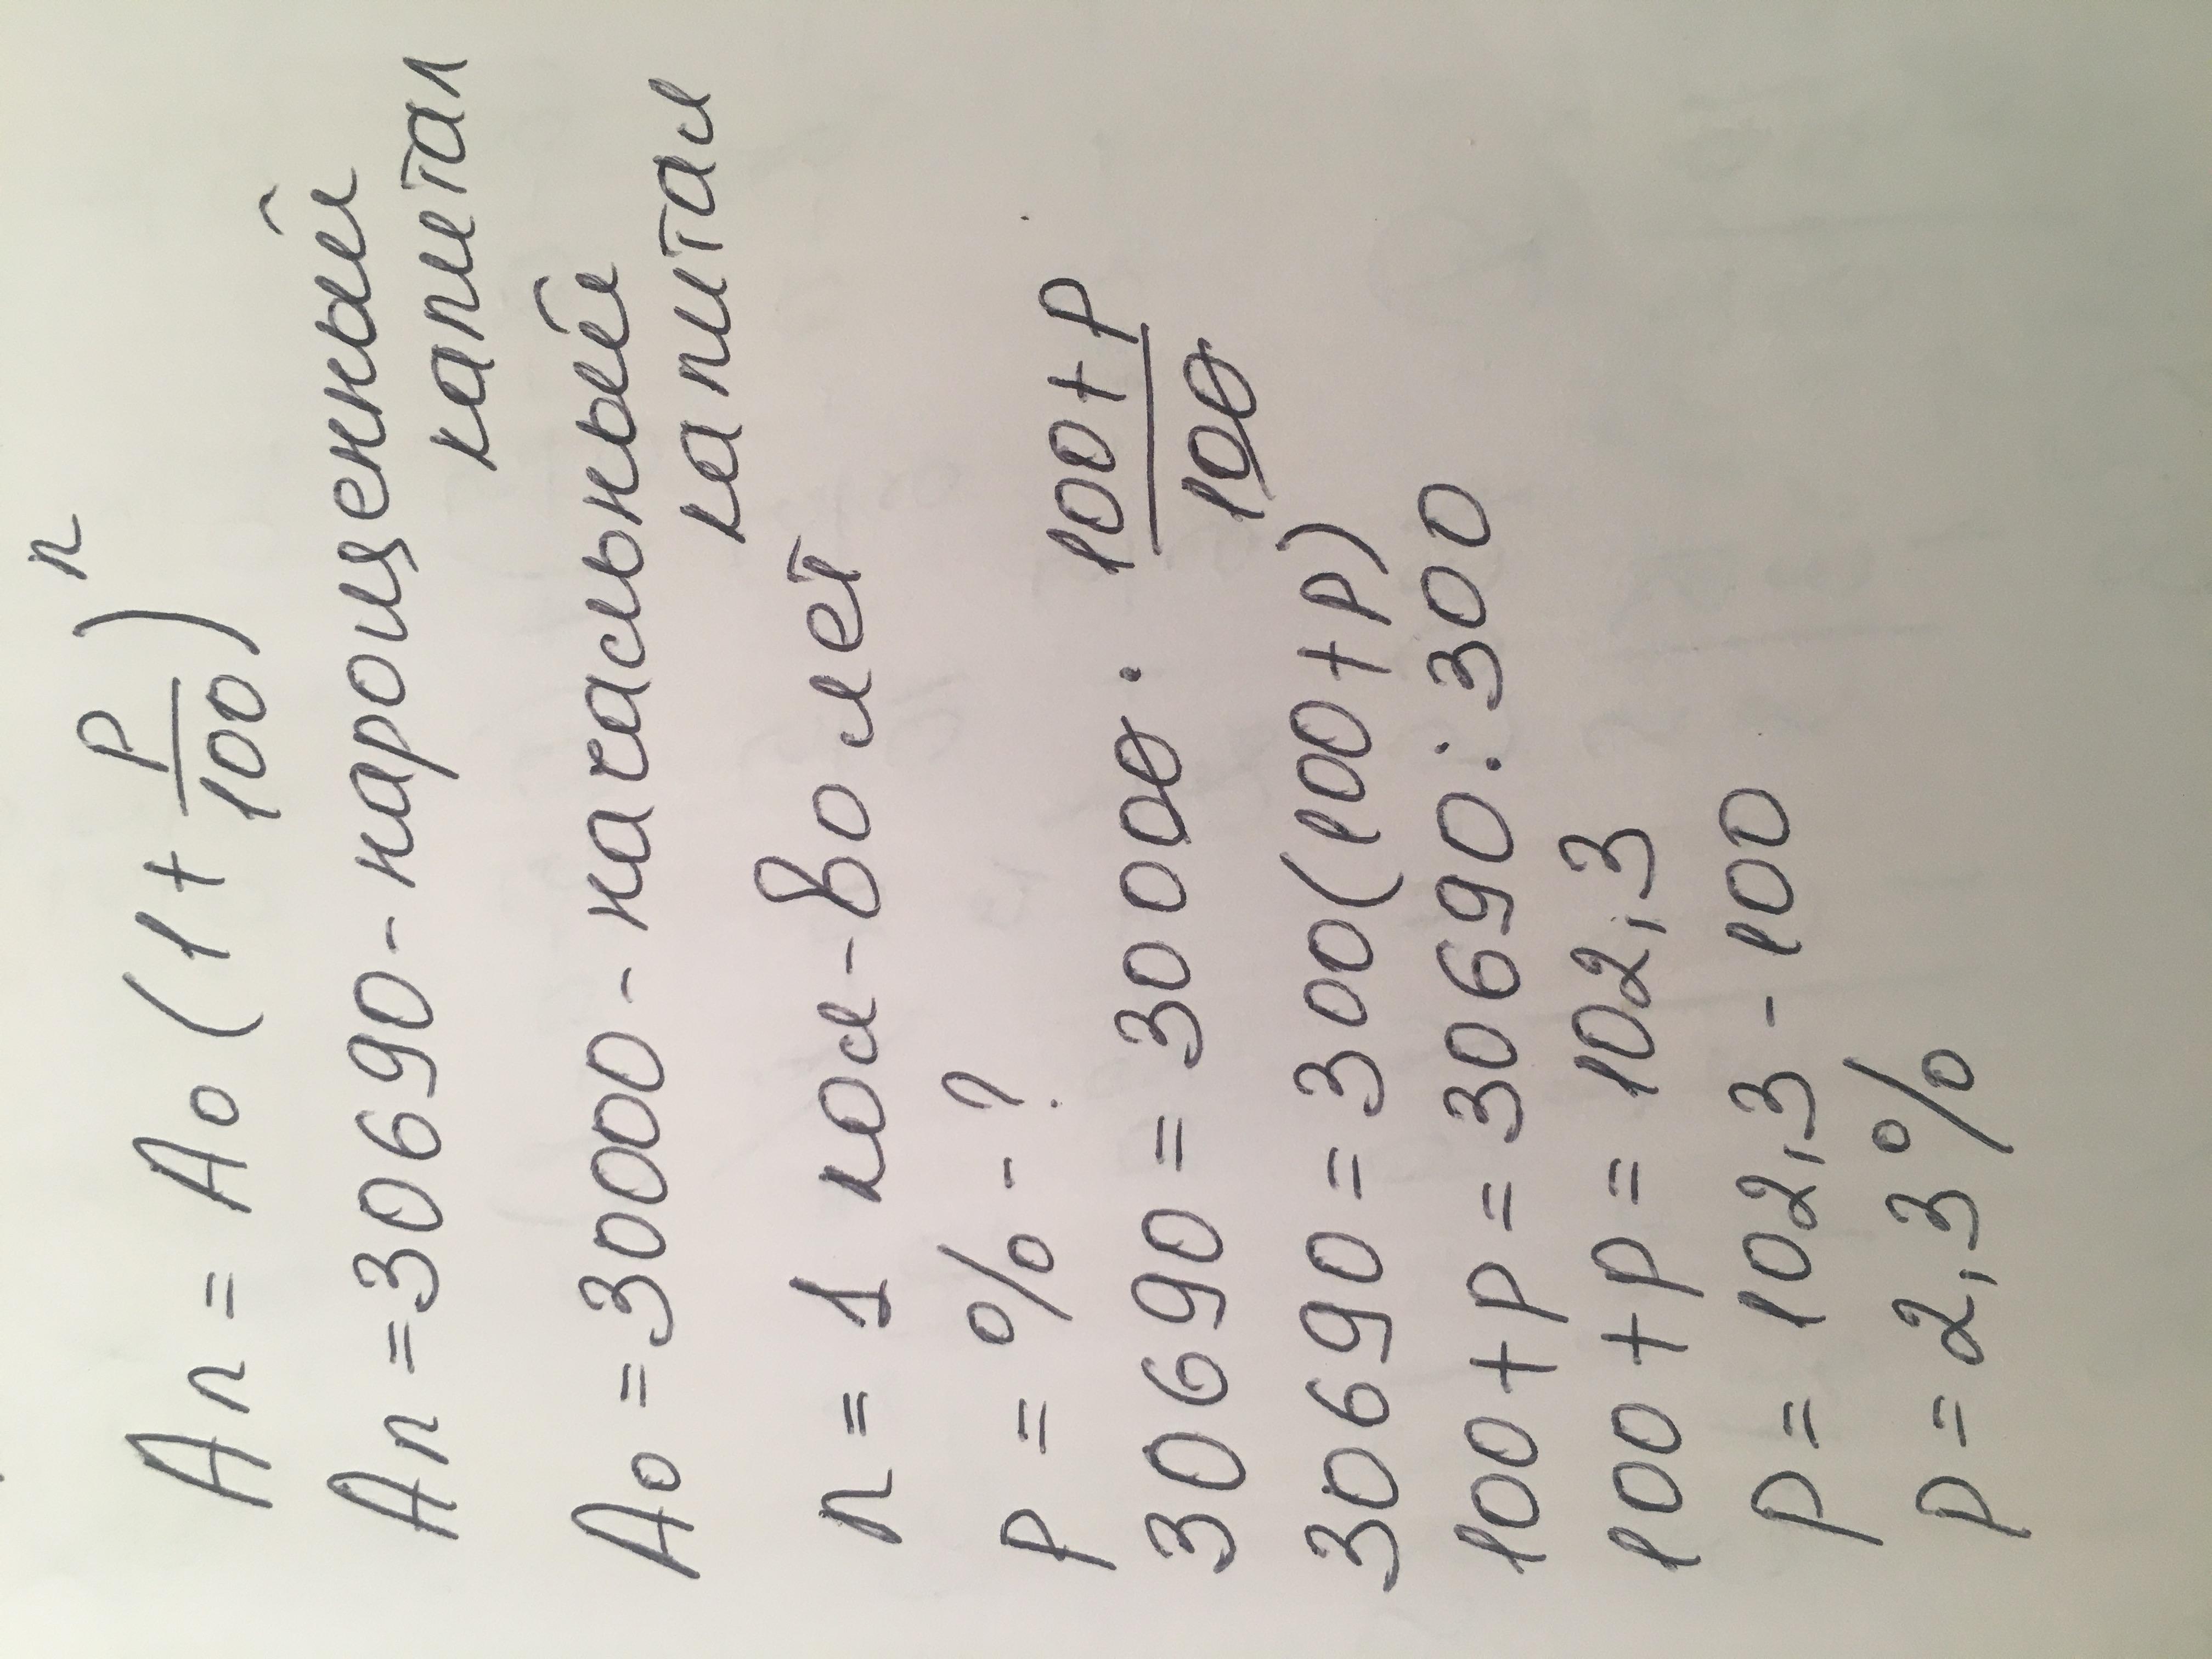 An = A₀ (1 + p/100)ⁿ
An = 30690 - нарощенный
капитал
A₀ = 30000 - начальный
капитал
n = 1 кол-во лет
p = % - ?
30690 = 30000 · (100 + p)/100
30690 = 300(100 + p)
100 + p = 30690 : 300
100 + p = 102,3
p = 102,3 - 100
p = 2,3%